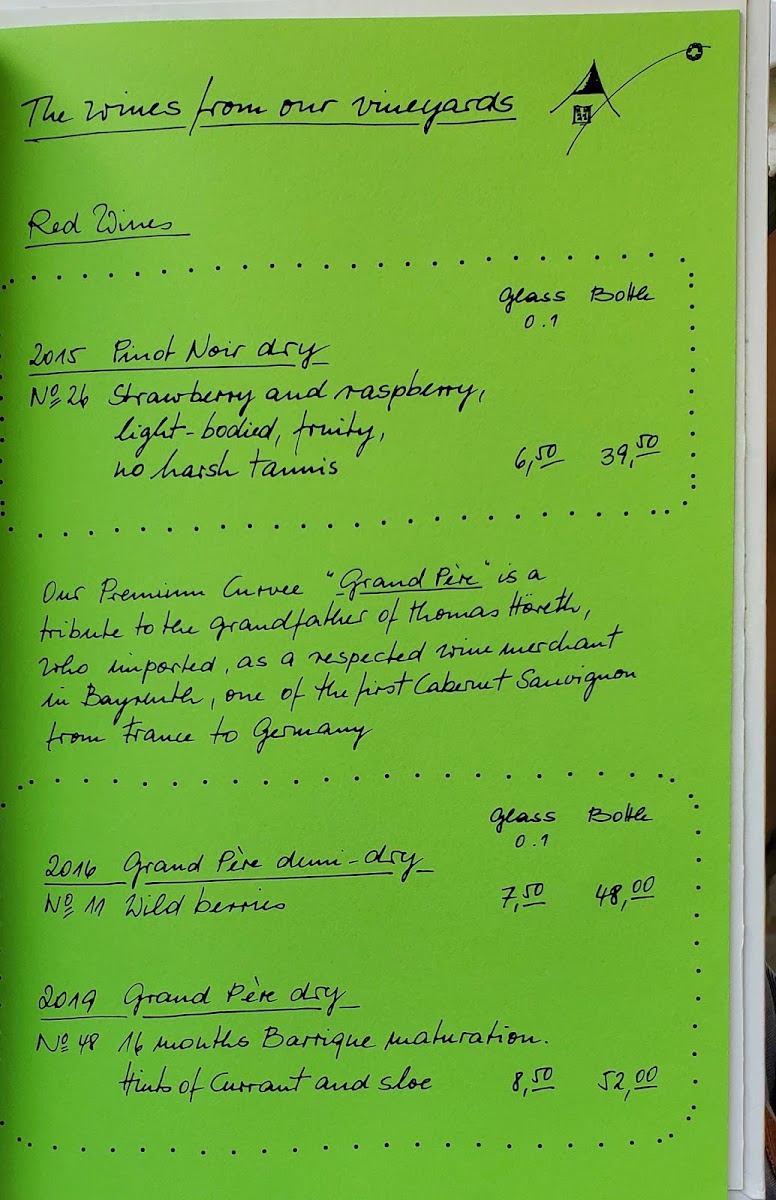 The wines from our vineyards
Red Wines
Glass Bottle
0.1
2015 Pinot Noir dry
№ 26 Strawberry and raspberry,
light-bodied, fruity,
no harsh tannis 6,50 39,50
Our Premium Curvee "Grand Père" is a
tribute to the grandfather of Thomas Höreth,
who imported, as a respected wine merchant
in Bayreuth, one of the first Cabernet Sauvignon
from France to Germany
Glass Bottle
0.1
2016 Grand Père demi-dry
№ 11 Wild berries 7,50 48,00
2019 Grand Père dry
№ 48 16 months Barrique maturation.
Hints of Currant and sloe 8,50 52,00